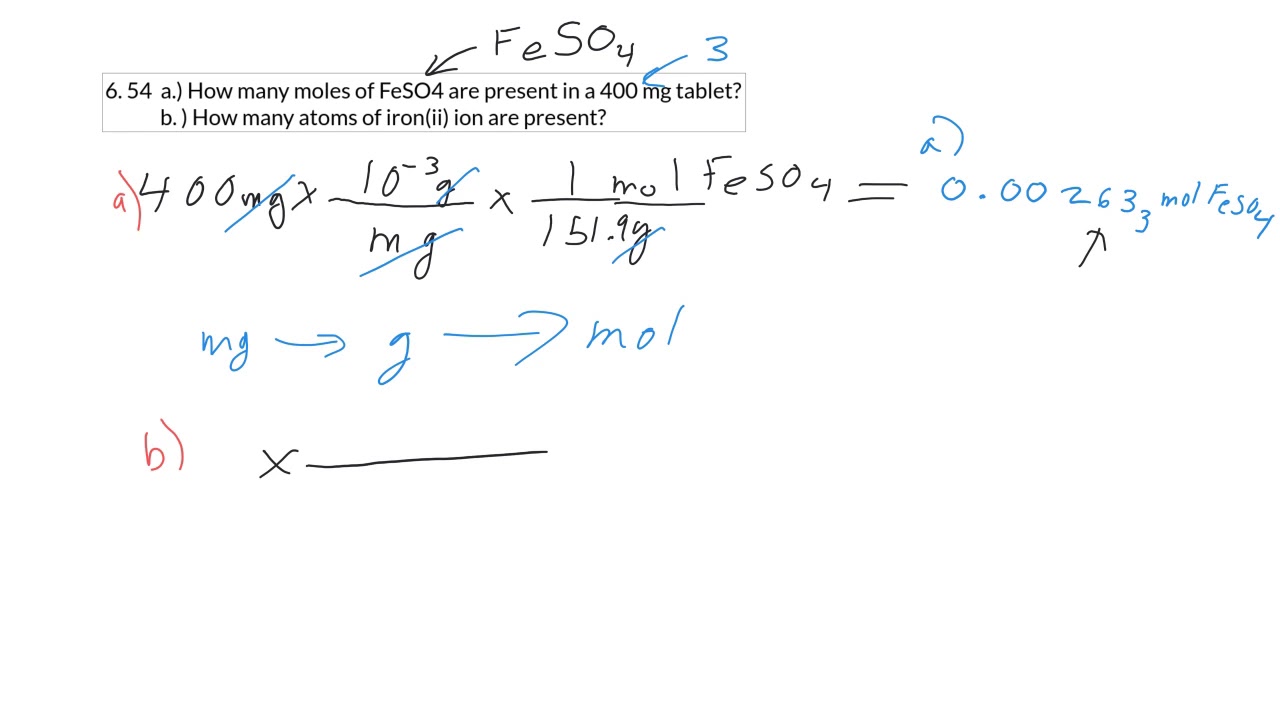 FeSO4
3
6. 54 a.) How many moles of FeSO4 are present in a 400 mg tablet?
b. ) How many atoms of iron(ii) ion are present?
a) 400mg x 10^-3 g / mg x 1 mol FeSO4 / 151.9g = a) 0.002633 mol FeSO4
mg → g → mol
b) x